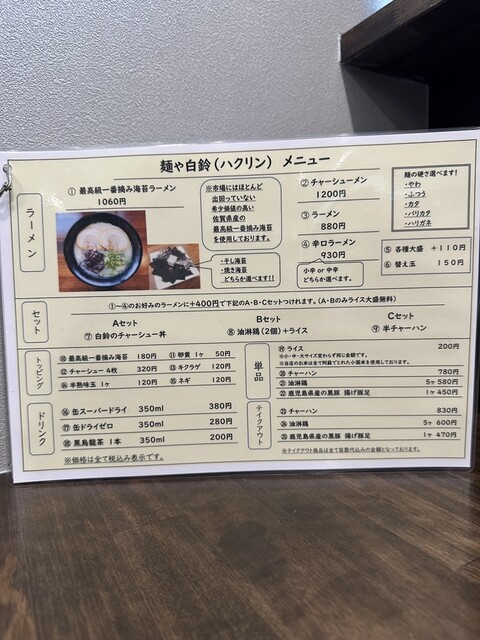 麺や白鈴(ハクリン) メニュー
ラーメン
① 最高級一番摘み海苔ラーメン
1060円
※市場にはほとんど
出回っていない
希少価値の高い
佐賀県産の
最高級一番摘み海苔
を使用しております。
・干し海苔
・焼き海苔
どちらか選べます!!
② チャーシューメン
1200円
③ ラーメン
880円
④ 辛口ラーメン
930円
小辛 or 中辛
どちらか選べます。
麺の硬さ選べます!
・やわ
・ふつう
・カタ
・バリカタ
・ハリガネ
⑤ 各種大盛 +110円
⑥ 替え玉 150円
セット
①~④のお好みのラーメンに+400円で下記のA・B・Cセットつけれます。(A・Bのみライス大盛無料)
Aセット
⑦ 白鈴のチャーシュー丼
Bセット
⑧ 油淋鶏(2個)+ライス
Cセット
⑨ 半チャーハン
トッピング
⑩ 最高級一番摘み海苔 180円
⑪ 卵黄 1ヶ 50円
⑫ チャーシュー 4枚 320円
⑬ キクラゲ 120円
⑭ 半熟味玉 1ヶ 120円
⑮ ネギ 120円
ドリンク
⑯ 缶スーパードライ 350ml 380円
⑰ 缶ドライゼロ 350ml 280円
⑱ 黒烏龍茶 1本 350ml 200円
※価格は全て税込み表示です。
単品
⑲ ライス 200円
※小・中・大サイズ変わらず同じ金額です。
※当店のお米は全て阿蘇でとれた小国米を使用しております。
⑳ チャーハン 780円
㉑ 油淋鶏 5ヶ 580円
㉒ 鹿児島県産の黒豚 揚げ豚足 1ヶ 450円
テイクアウト
㉓ チャーハン 830円
㉔ 油淋鶏 5ヶ 600円
㉕ 鹿児島県産の黒豚 揚げ豚足 1ヶ 470円
※テイクアウト商品は全て容器代込みの金額となっております。